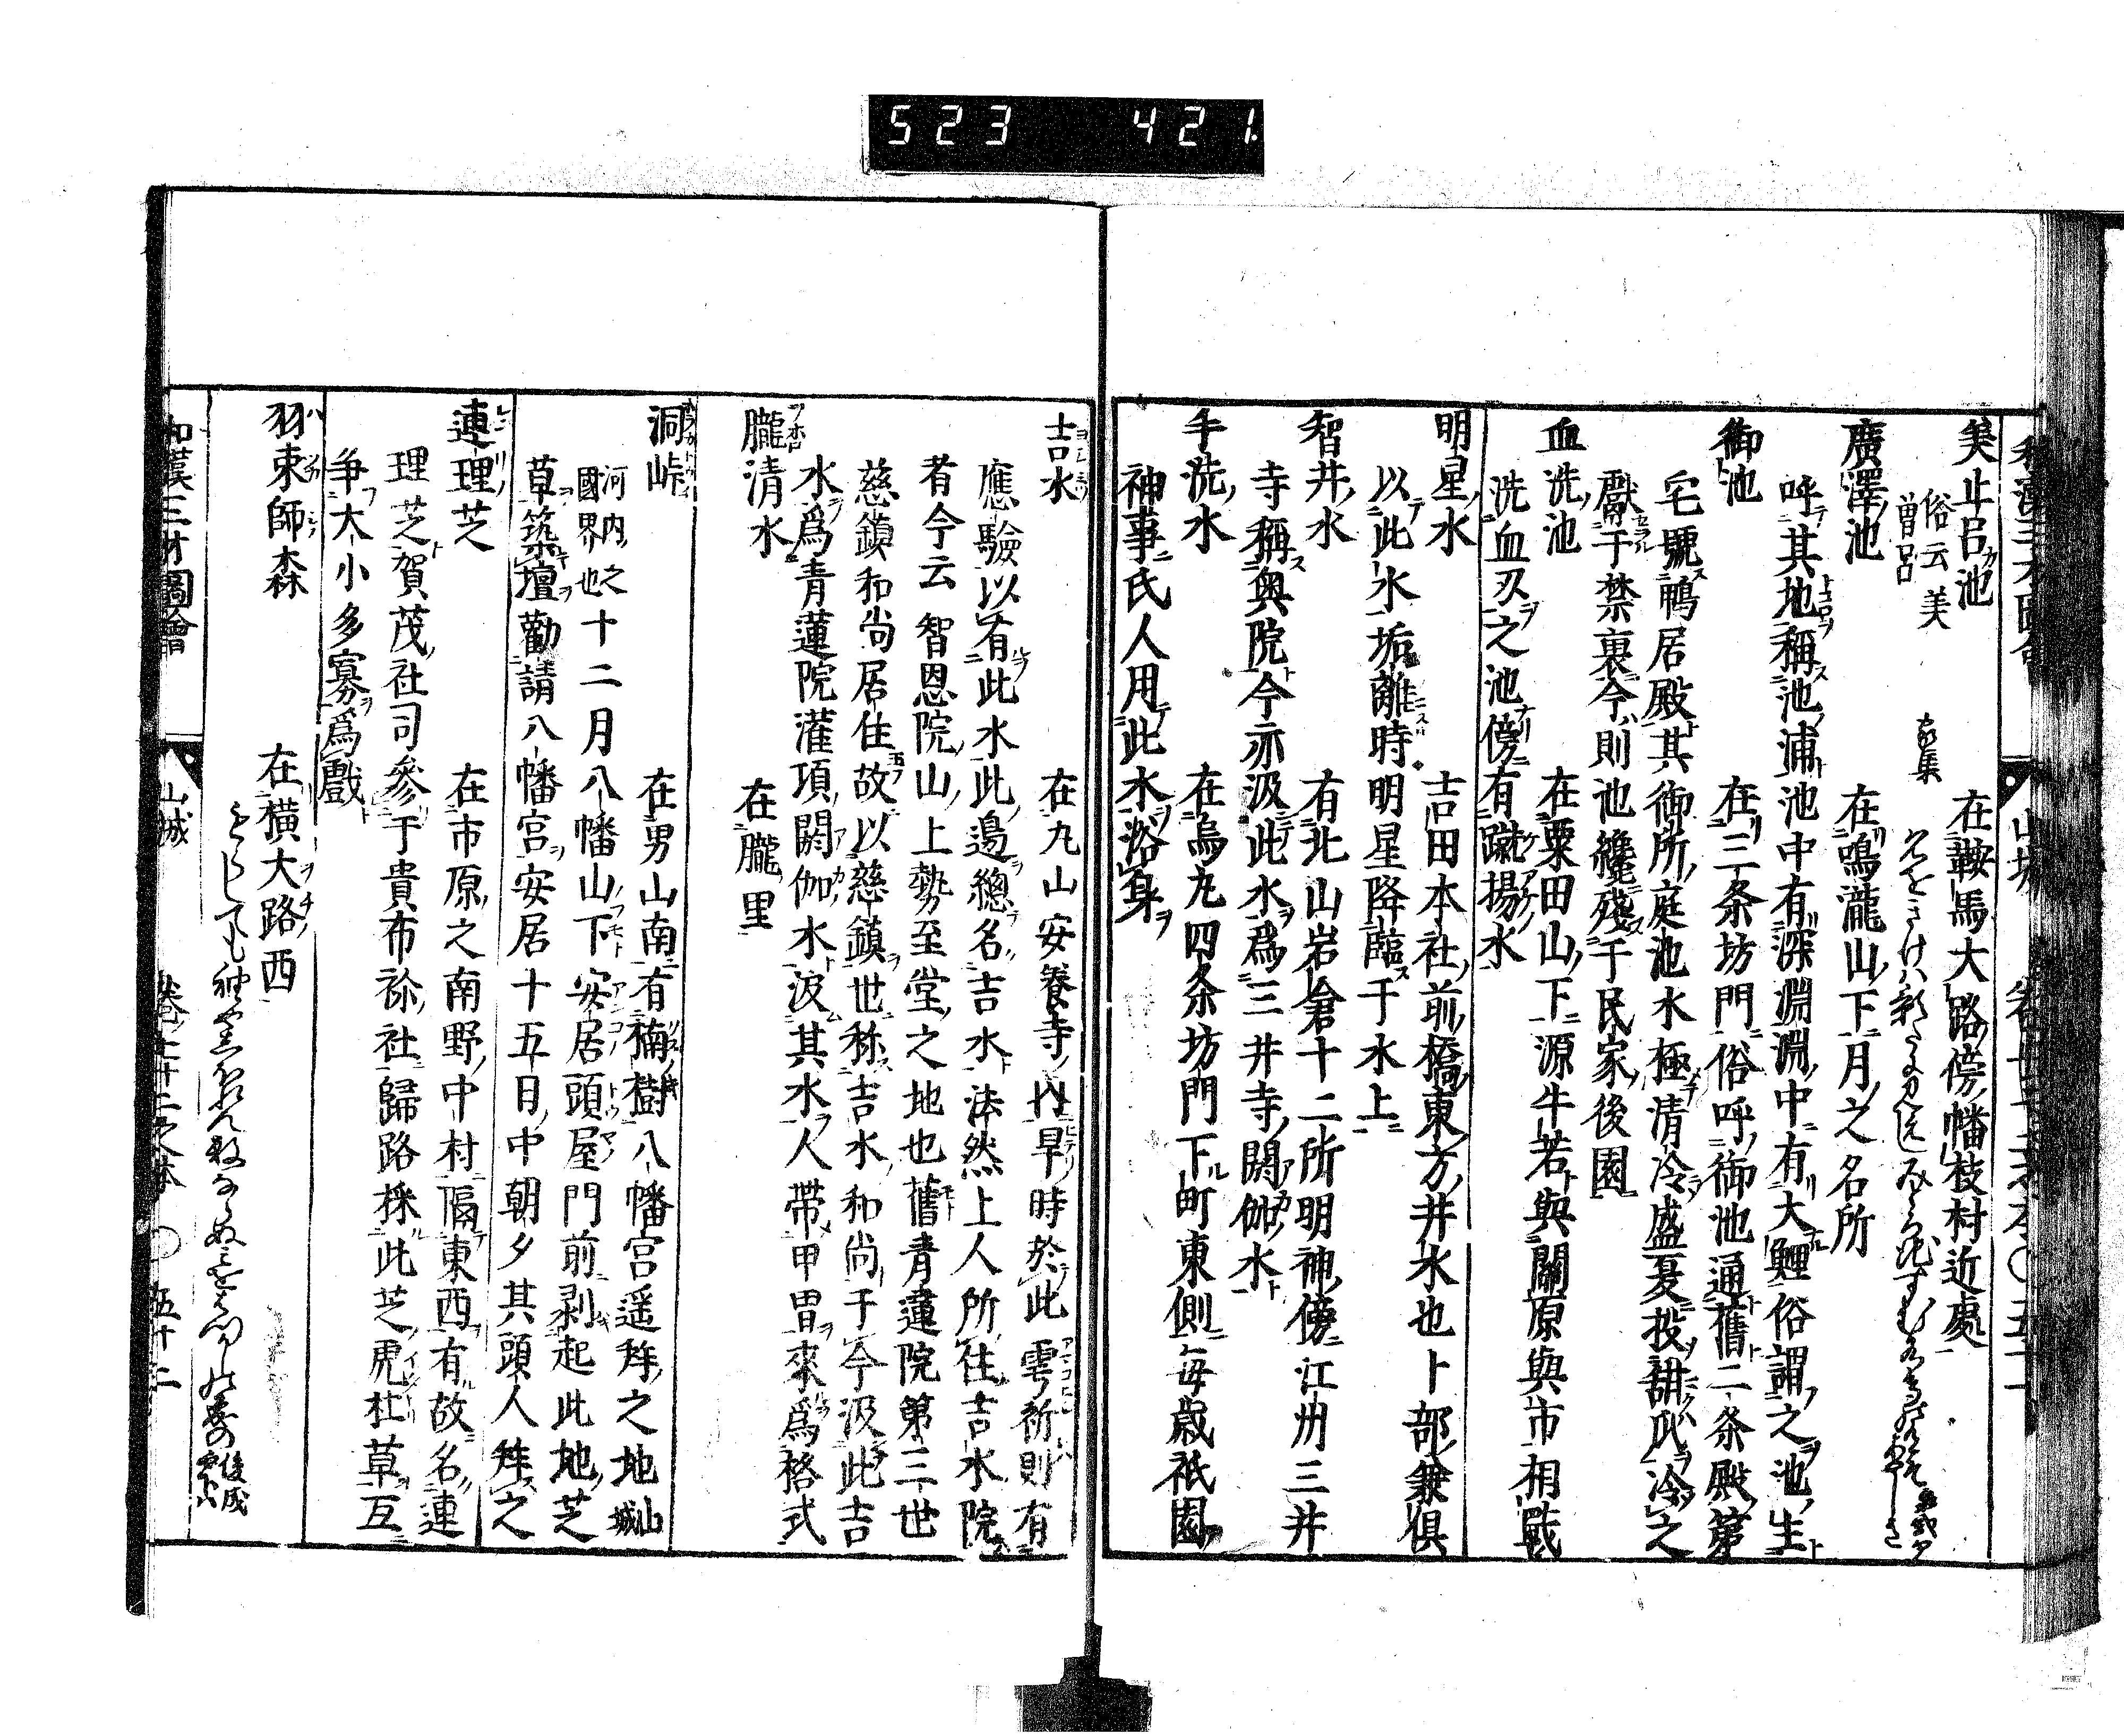 523 421
美止呂池 在鞍馬大路傍幡枝村近處
俗云美曽呂
家集
廣澤池 在鳴瀧山下月之名所
呼其地稱池浦池中有深淵淵中有大鯉俗謂之池生
御池 在三条坊門俗呼御池通舊二条殿第
宅號鴨居殿其御所庭池水極清冷盛夏投諸瓜冷之
獻于禁裏今則池纔殘于民家後園
血洗池 在粟田山下源牛若與關原與市相戰
洗血刃之池傍有蹴揚水
明星水 吉田本社前橋東方井水也卜部兼俱
以此水垢離時明星降臨于水上
智井水 有北山岩倉十二所明神傍江州三井
寺稱奥院今亦汲此水爲三井寺閼伽水
手洗水 在烏丸四条坊門下町東側毎歳祇園
神事氏人用此水浴身
吉水 在丸山安養寺内早時於此雩祈則有
應驗以有此水此邊總名吉水法然上人所住吉水院
者今云智恩院山上勢至堂之地也舊青蓮院第三世
慈鎮和尚居住故以慈鎮世称吉水和尚于今汲此吉
水爲青蓮院灌頂閼伽水汲其水人帶甲冑來爲格式
朧清水 在朧里
洞峠 在男山南有楠樹八幡宮遥拜之地山城
河内之國界也十二月八幡山下安居頭屋門前剥起此地芝
草築壇勸請八幡宮安居十五日中朝夕其頭人拜之
連理芝 在市原之南野中村隔東西有故名連
理芝賀茂社司參于貴布祢社歸路採此芝虎杖草互
争大小多寡爲戲
羽束師森 在横大路西
俊成
和漢三才圖會 山城 卷七十二之本 〇 五十二